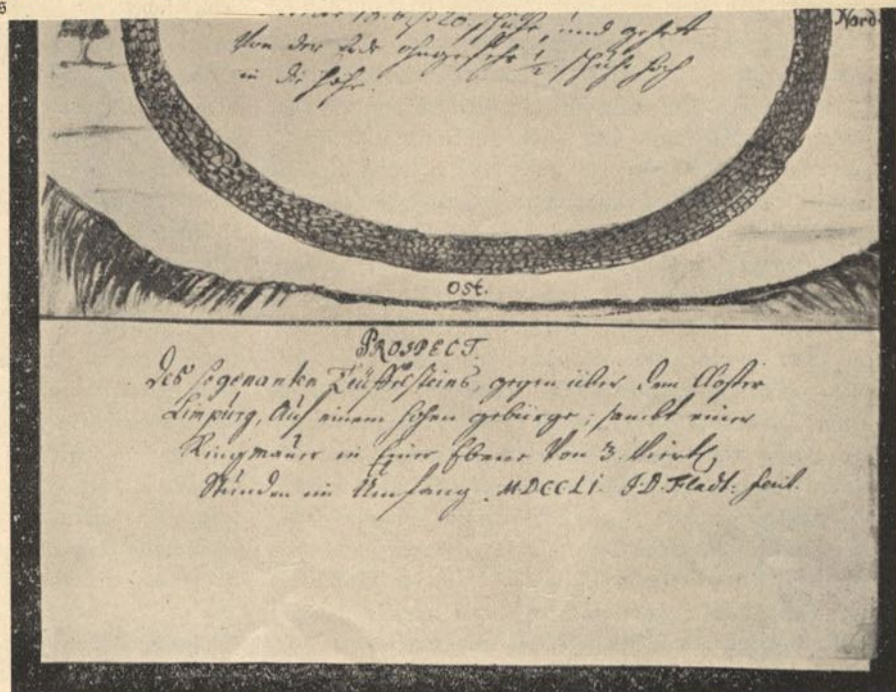 18. bis 20, schuhe, und gehet
Von der Erde ohngefehr 1/2 schuhe hoch
in die höhe.
Nord
Ost.
PROSPECT.
Des sogenanten Teüffelsteins, gegen über dem Closter
Limpurg, Auf einem hohen gebürge; sambt einer
Ringmauer in Einer Ebene Von 3. Viertl,
Stunden im Umfang. MDCCLI. J.D. Fladt: fecit.